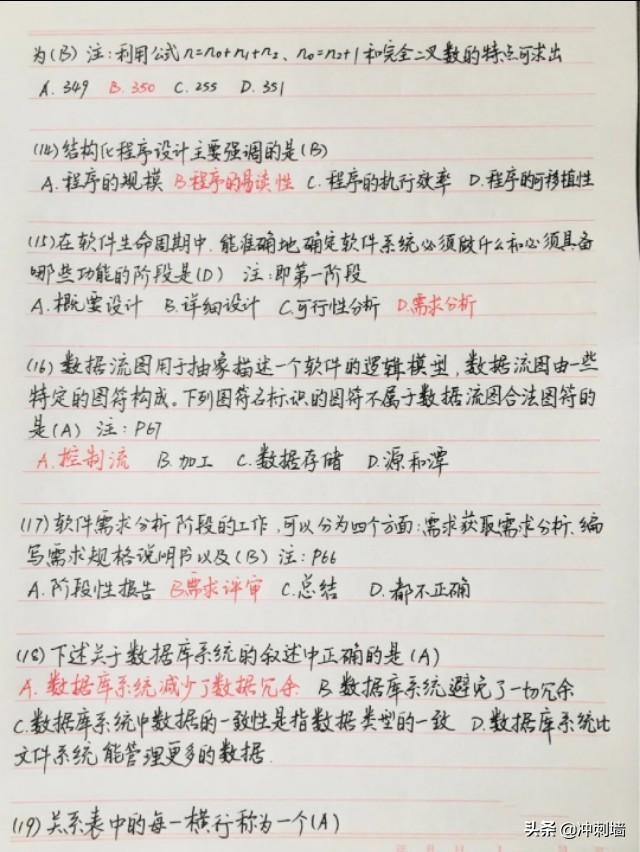 为(B) 注:利用公式n=n0+n1+n2、n0=n2+1和完全二叉数的特点可求出
A. 349 B. 350 C. 255 D. 351
(14)结构化程序设计主要强调的是(B)
A.程序的规模 B程序的易读性 C.程序的执行效率 D.程序的可移植性
(15)在软件生命周期中,能准确地确定软件系统必须做什么和必须具备
哪些功能的阶段是(D) 注:即第一阶段
A.概要设计 B.详细设计 C.可行性分析 D.需求分析
(16)数据流图用于抽象描述一个软件的逻辑模型,数据流图由一些
特定的图符构成。下列图符名标识的图符不属于数据流图合法图符的
是(A) 注:P67
A.控制流 B.加工 C.数据存储 D.源和潭
(17)软件需求分析阶段的工作,可以分为四个方面:需求获取需求分析、编
写需求规格说明书以及(B) 注:P66
A.阶段性报告 B需求评审 C.总结 D.都不正确
(18)下述关于数据库系统的叙述中正确的是(A)
A.数据库系统减少了数据冗余 B数据库系统避免了一切冗余
C.数据库系统中数据的一致性是指数据类型的一致 D.数据库系统比
文件系统能管理更多的数据.
(19)关系表中的每一横行称为一个(A)
头条@冲刺墙